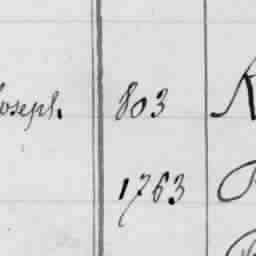 Joseph. 803
1763